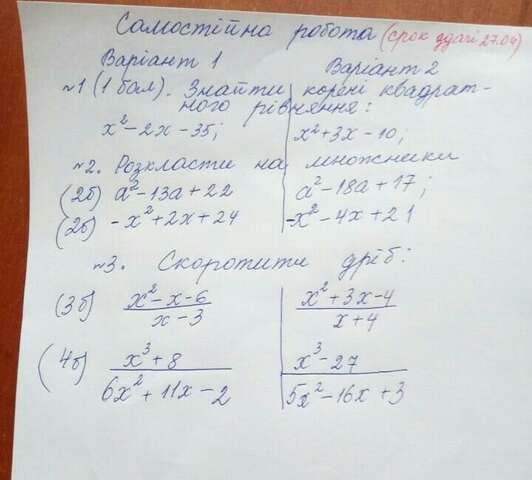 Самостійна робота (срок здачі 27.04)
Варіант 1 Варіант 2
№1 (1 бал). Знайти корені квадрат-
ного рівняння:
x²-2x-35; x²+3x-10;
№2. Розкласти на множники
(2б) a²-13a+22 a²-18a+17;
(2б) -x²+2x+24 -x²-4x+21
№3. Скоротити дріб:
(3б) x²-x-6 x²+3x-4
x-3 x+4
(4б) x³+8 x³-27
6x²+11x-2 5x²-16x+3